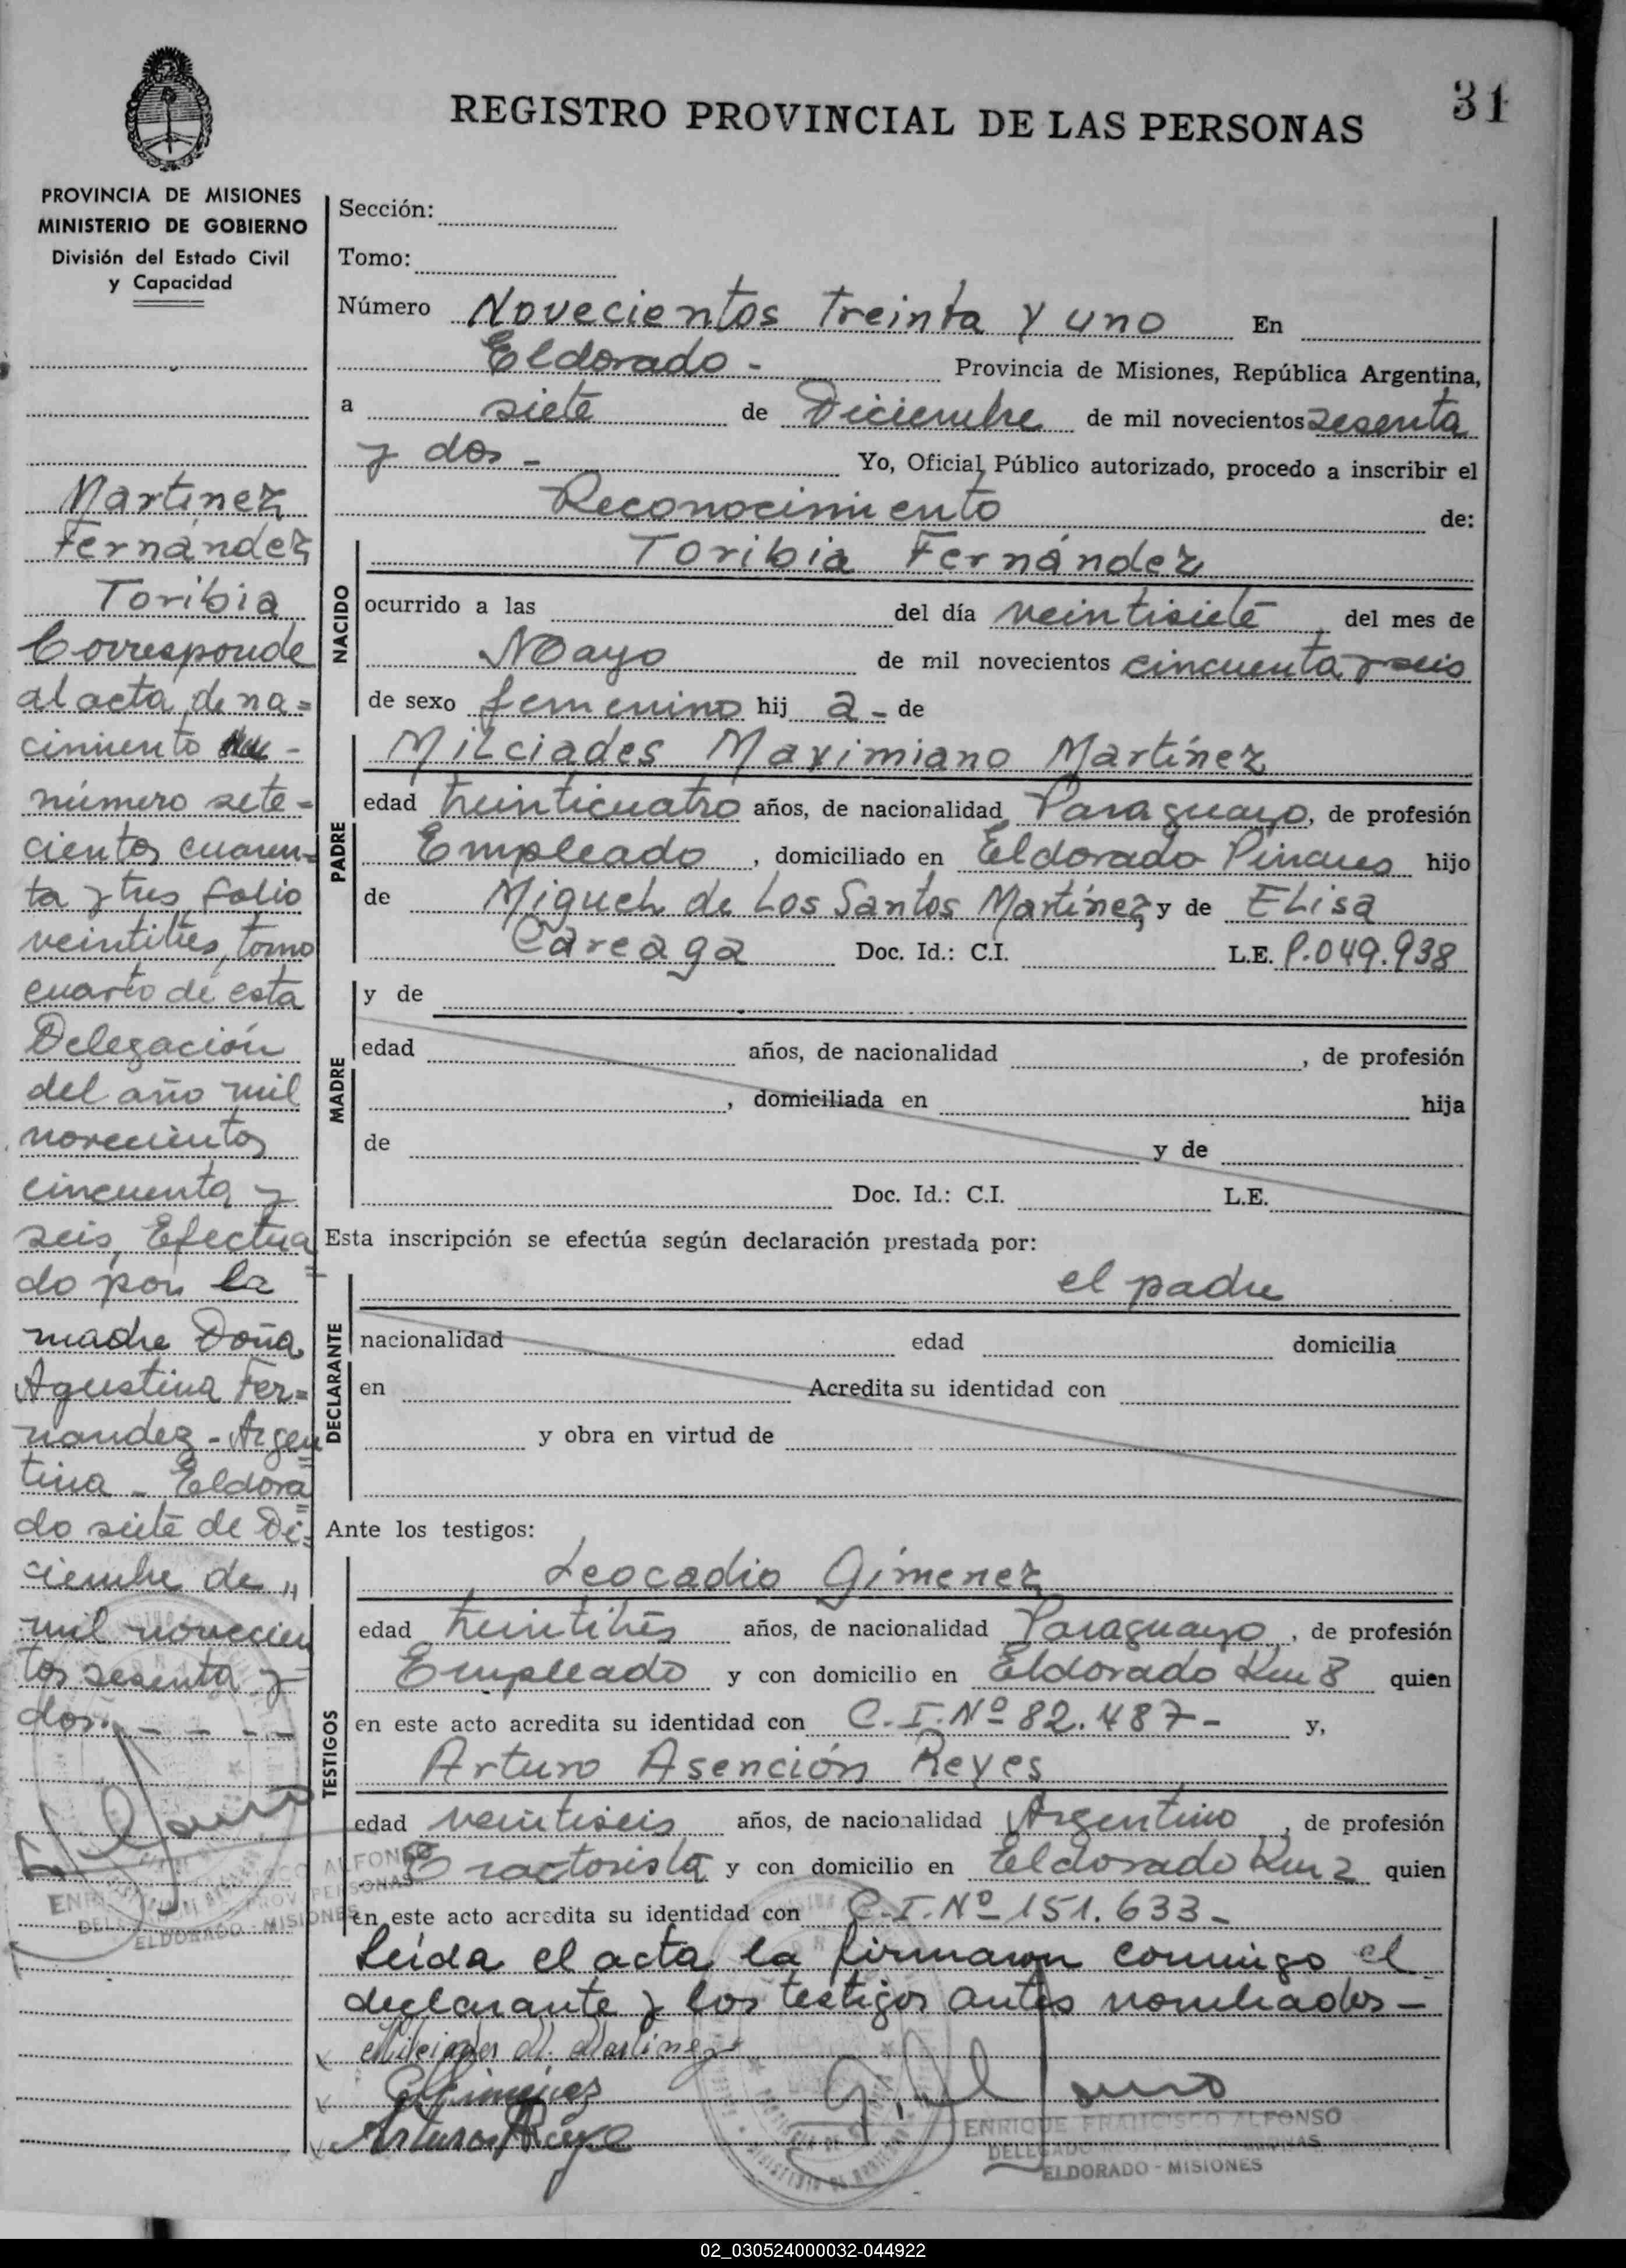 31
REGISTRO PROVINCIAL DE LAS PERSONAS
PROVINCIA DE MISIONES
MINISTERIO DE GOBIERNO
División del Estado Civil
y Capacidad
Martínez
Fernández
Toribia
Corresponde
al acta de na=
cimiento
número sete-
cientos cuaren=
ta y tres folio
veintitres, tomo
cuarto de esta
Delegación
del año mil
novecientos
cincuenta y
seis, Efectua
do por la
madre Doña
Agustina Fer=
nandez - Argen
tina - Eldora
do siete de Di=
ciembre de "
mil novecien
tos sesenta y
dos. - - - -
Sección:
Tomo:
Número Novecientos Treinta y uno En
Eldorado - Provincia de Misiones, República Argentina,
a siete de Diciembre de mil novecientos sesenta
y dos - Yo, Oficial Público autorizado, procedo a inscribir el
Reconocimiento de:
NACIDO
Toribia Fernández
ocurrido a las del día veintisiete del mes de
Mayo de mil novecientos cincuenta y seis
de sexo femenino hij a - de
PADRE
Milciades Maximiano Martínez
edad treinticuatro años, de nacionalidad Paraguayo, de profesión
Empleado, domiciliado en Eldorado Pinares hijo
de Miguel de Los Santos Martínez y de Elisa
Careaga Doc. Id.: C.I. L.E. P.049.938
MADRE
y de
edad años, de nacionalidad , de profesión
, domiciliada en hija
de y de
Doc. Id.: C.I. L.E.
Esta inscripción se efectúa según declaración prestada por:
DECLARANTE
el padre
nacionalidad edad domicilia
en Acredita su identidad con
y obra en virtud de
Ante los testigos:
TESTIGOS
Leocadio Gimenez
edad treintitrés años, de nacionalidad Paraguayo, de profesión
Empleado y con domicilio en Eldorado Km 8 quien
en este acto acredita su identidad con C.I. Nº 82.487- y,
Arturo Asención Reyes
edad veintiseis años, de nacionalidad Argentino, de profesión
Tractorista y con domicilio en Eldorado Km 2 quien
en este acto acredita su identidad con C.I. Nº 151.633-
Leída el acta la firmaron conmigo el
declarante y los testigos antes nombrados -
Milciades M. Martinez
Gimenez
Arturo A Reyes
ENRIQUE FRANCISCO ALFONSO
ELDORADO - MISIONES
ALFONSO
PROV PERSONAS
ELDORADO - MISIONES
02_030524000032-044922